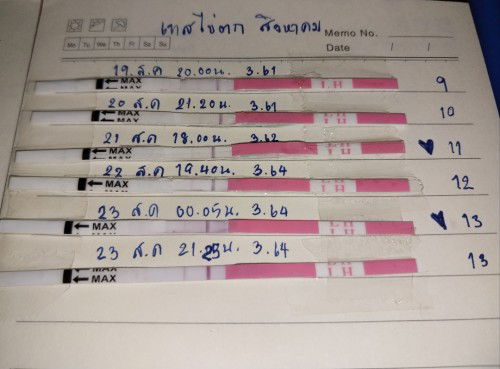 เทสไข่ตก สิงหาคม
Memo No.
Mo Tu We Th Fr Sa Su
Date / /
19 ส.ค 20.00น. 3.61
MAX LH 9
20 ส.ค 21.20น. 3.61
MAX LH 10
21 ส.ค 18.00น. 3.62
MAX LH ♥ 11
22 ส.ค 19.40น. 3.64
MAX LH 12
23 ส.ค 00.05น. 3.64
MAX LH ♥ 13
23 ส.ค 21.25น. 3.64
MAX LH 13